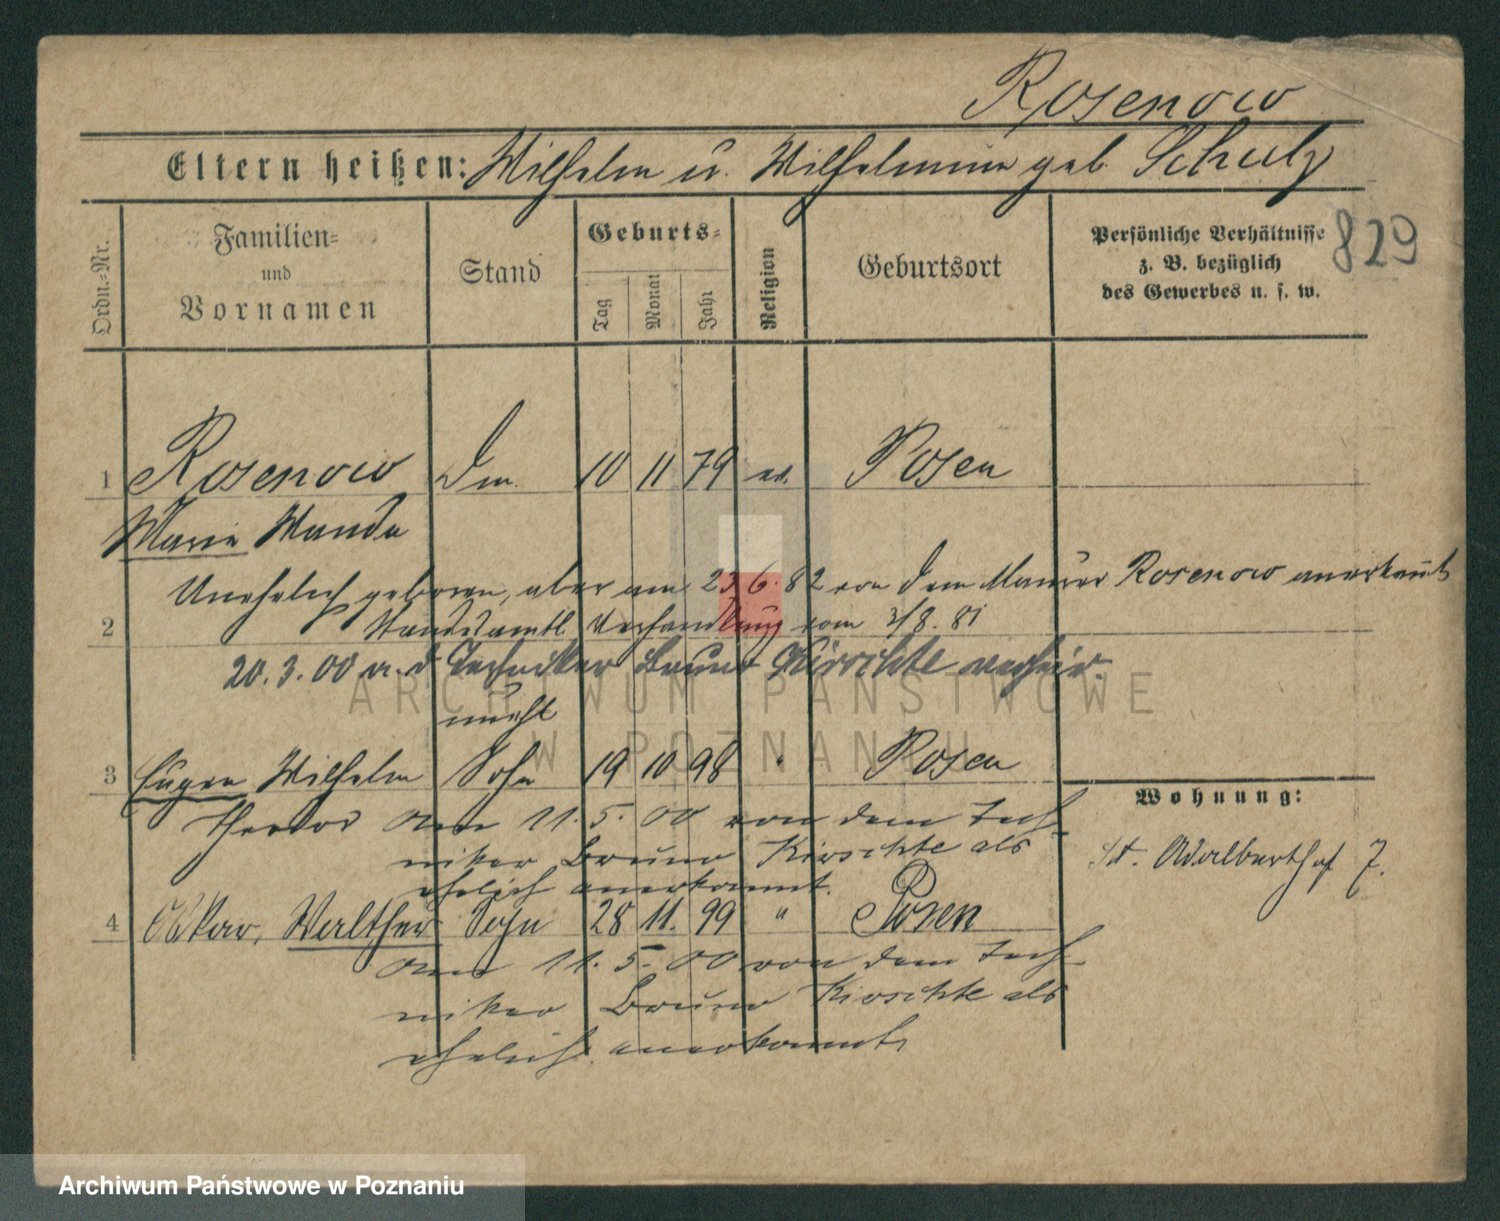 Rosenow
Eltern heißen: Wilhelm u. Wilhelmine geb. Schulz
829
Ordn.-Nr.
Familien- und Vornamen
Stand
Geburts-
Tag
Monat
Jahr
Religion
Geburtsort
Persönliche Verhältnisse
z. B. bezüglich
des Gewerbes u. s. w.
1 Rosenow 10 11 79 ev. Posen
Marie Wanda
Unehelich geboren, aber am 23.6.82 von dem Maurer Rosenow anerkannt
2 Standesamtl. Verhandlung vom 81
20.3.00 m. d. Techniker Bruno Kirschke verheir.
unehl
3 Eugen Wilhelm Sohn 19 10 98 " Posen
Theodor am 11.5.00 von dem Tech-
niker Bruno Kirschke als
ehelich anerkannt.
4 Oskar, Walther Sohn 28 11. 99 " Posen
am 11.5.00 von dem Tech-
niker Bruno Kirschke als
ehelich anerkannt.
Wohnung:
St. Adalberthof 7.
ARCHIWUM PAŃSTWOWE
W POZNANIU
Archiwum Państwowe w Poznaniu